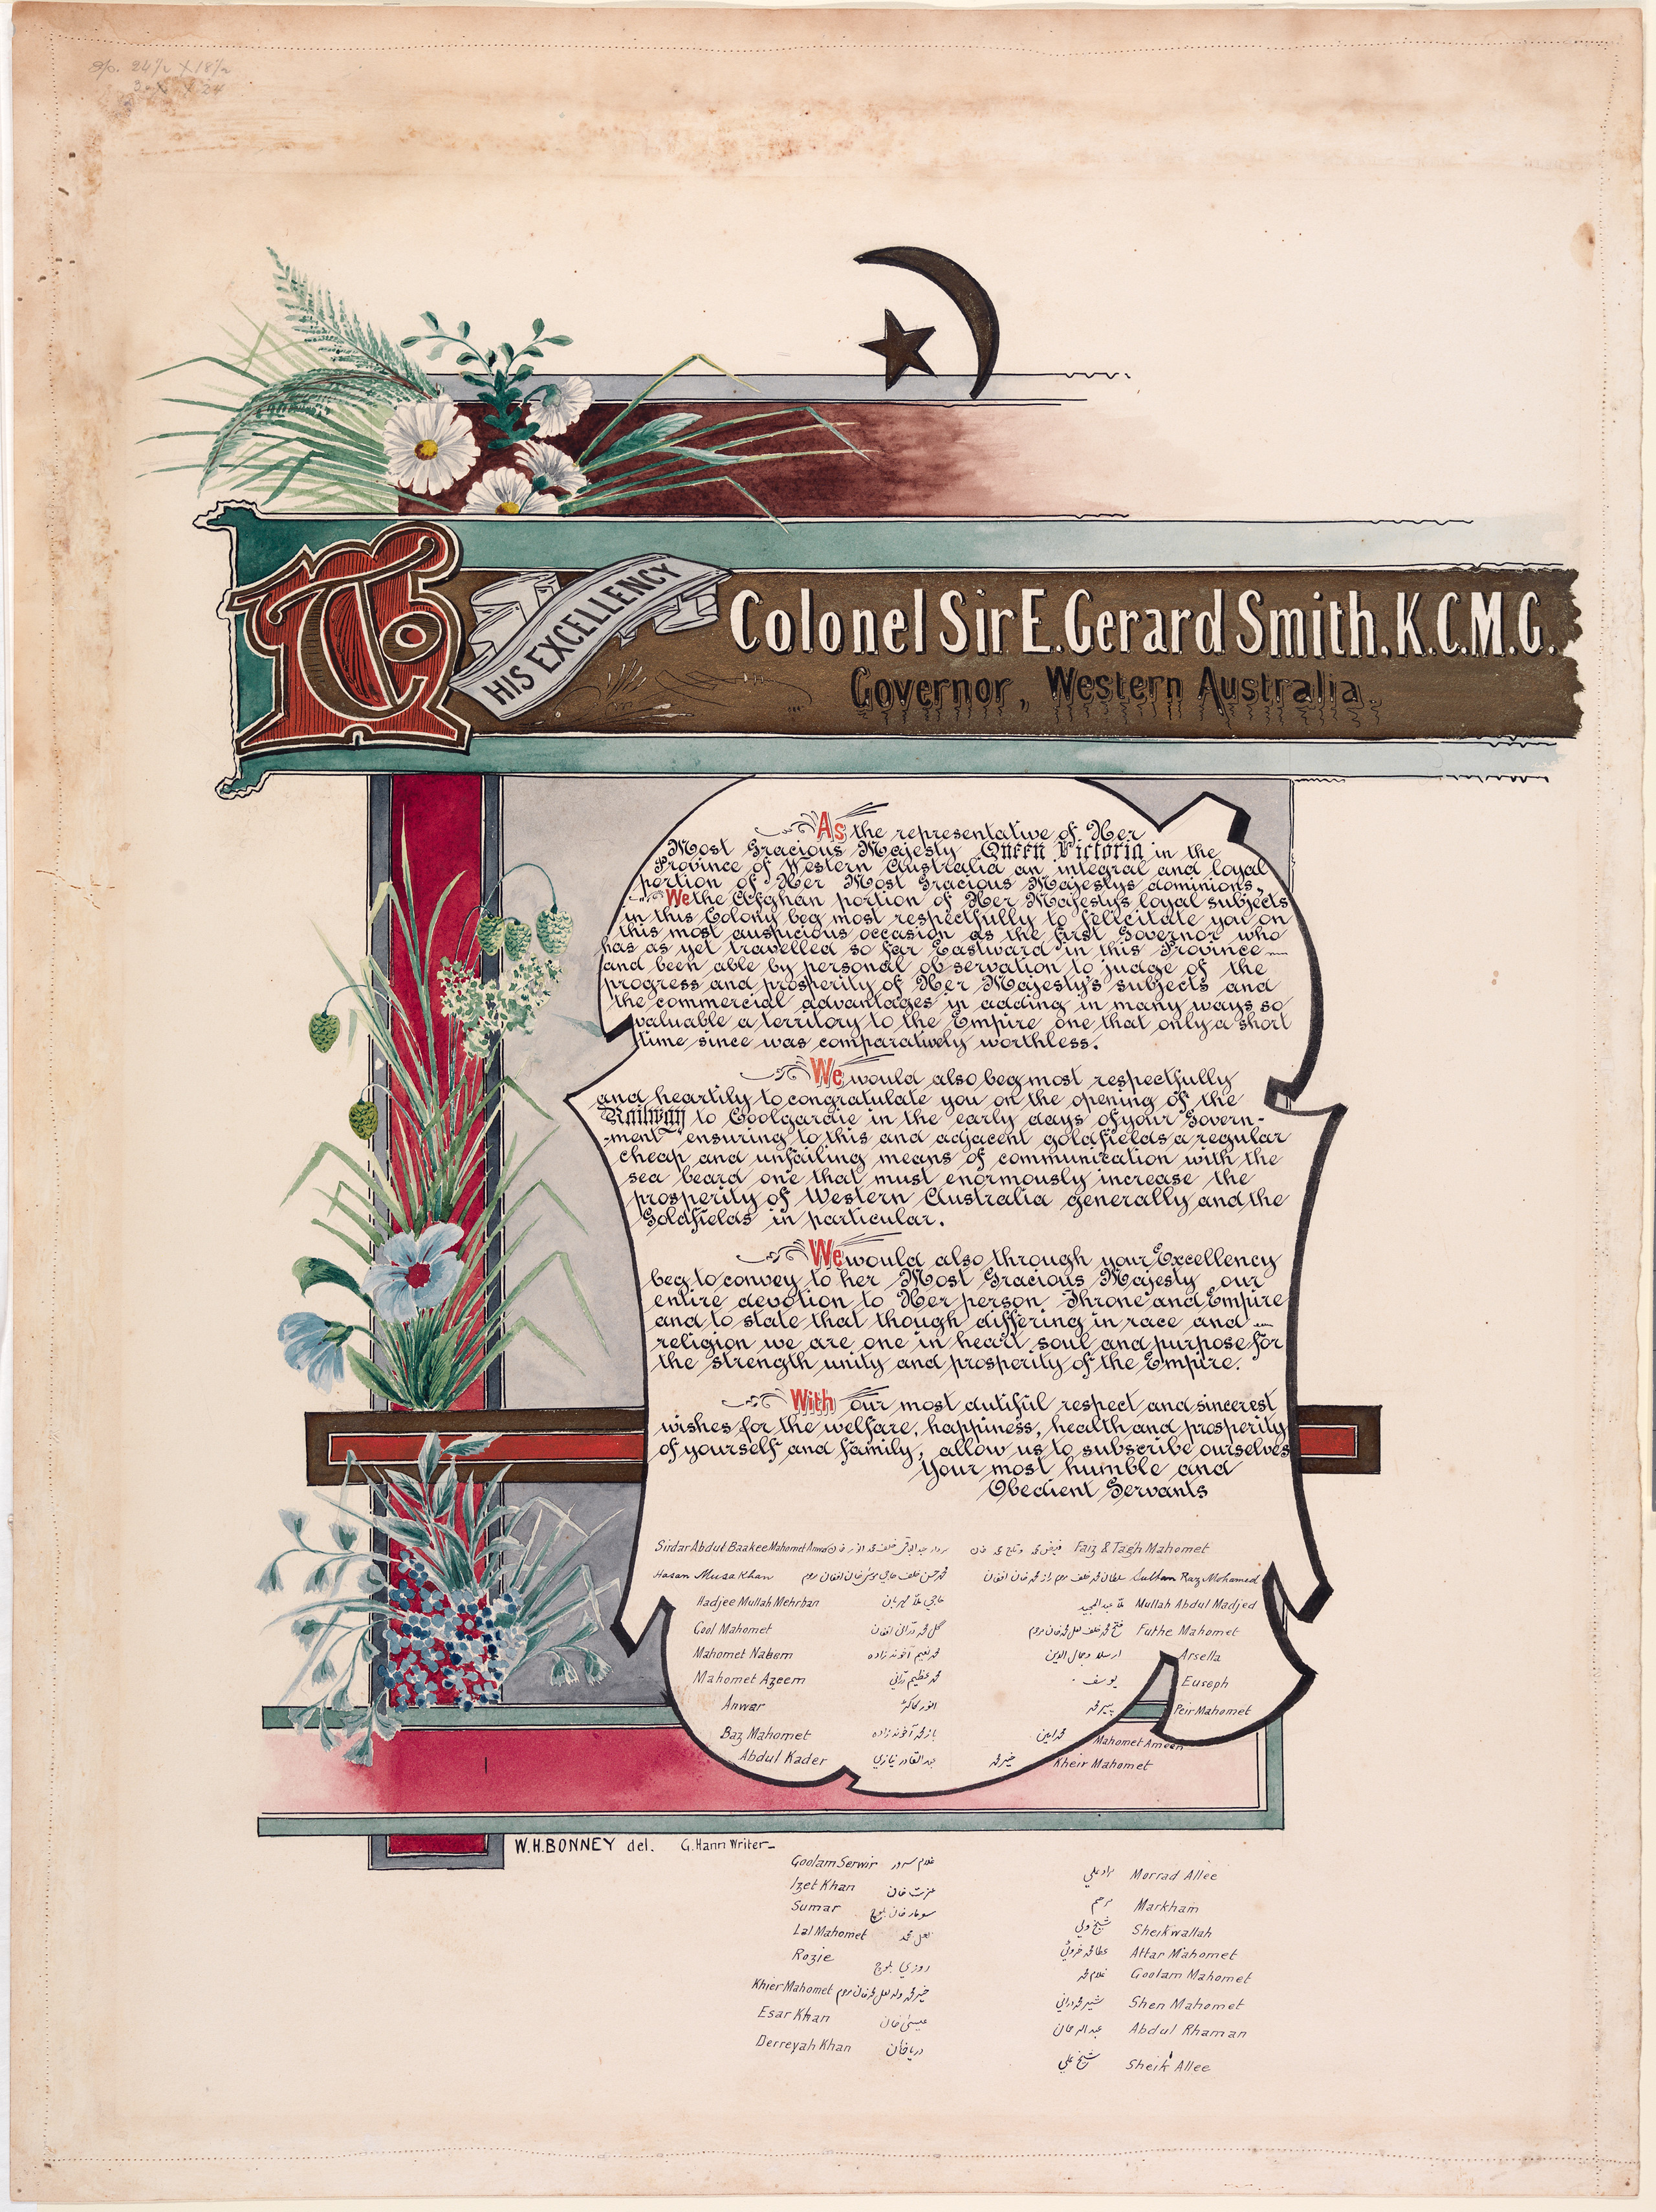 To
HIS EXCELLENCY
Colonel Sir E. Gerard Smith, K.C.M.G.
Governor, Western Australia.
As the representative of Her
Most Gracious Majesty Queen Victoria in the
Province of Western Australia an integral and loyal
portion of Her Most Gracious Majestys dominions,
We the Afghan portion of Her Majesty's loyal subjects
in this Colony beg most respectfully to felicitate you on
this most auspicious occasion as the first Governor who
has as yet travelled so far Eastward in this Province
and been able by personal observation to judge of the
progress and prosperity of Her Majesty's subjects and
the commercial advantages in adding in many ways so
valuable a territory to the Empire one that only a short
time since was comparatively worthless.
We would also beg most respectfully
and heartily to congratulate you on the opening of the
Railway to Coolgardie in the early days of your Govern-
-ment ensuring to this and adjacent goldfields a regular
cheap and unfailing means of communication with the
sea board one that must enormously increase the
prosperity of Western Australia generally and the
Goldfields in particular.
We would also through your Excellency
beg to convey to her Most Gracious Majesty our
entire devotion to Her person Throne and Empire
and to state that though differing in race and
religion we are one in heart soul and purpose for
the strength unity and prosperity of the Empire.
With our most dutiful respect and sincerest
wishes for the welfare, happiness, health and prosperity
of yourself and family, allow us to subscribe ourselves
Your most humble and
Obedient Servants
Sirdar Abdul Baakee Mahomet Anwar فيض محمد و تاج محمد خان Faiz & Tagh Mahomet
Hasan Musa Khan Sultan Raz Mohamed
Hadjee Mullah Mehrban حاجي ملا مهربان ملا عبدالمجيد Mullah Abdul Madjed
Gool Mahomet گل محمد دراني افغان Futhe Mahomet
Mahomet Naeem محمد نعيم آخوندزاده Arsella
Mahomet Azeem محمد عظيم دراني يوسف Euseph
Anwar انور كاكڑ پير محمد Peir Mahomet
Baz Mahomet باز محمد آخوندزاده محمد امين Mahomet Ameen
Abdul Kader عبدالقادر نيازي خير محمد Kheir Mahomet
W.H.BONNEY del. G.Hann Writer
Goolam Serwir غلام سرور مراد علي Morrad Allee
Izet Khan عزت خان Markham
Sumar سومار خان بلوچ شيخ ولي Sheikwallah
Lal Mahomet لعل محمد Attar Mahomet
Rozie روزي بلوچ غلام محمد Goolam Mahomet
Khier Mahomet خير محمد ولد لعل محمد خان مرحوم شير محمد دراني Shen Mahomet
Esar Khan عيسىٰ خان عبدالرحمان Abdul Rhaman
Derreyah Khan دريا خان شيخ علي Sheik Allee